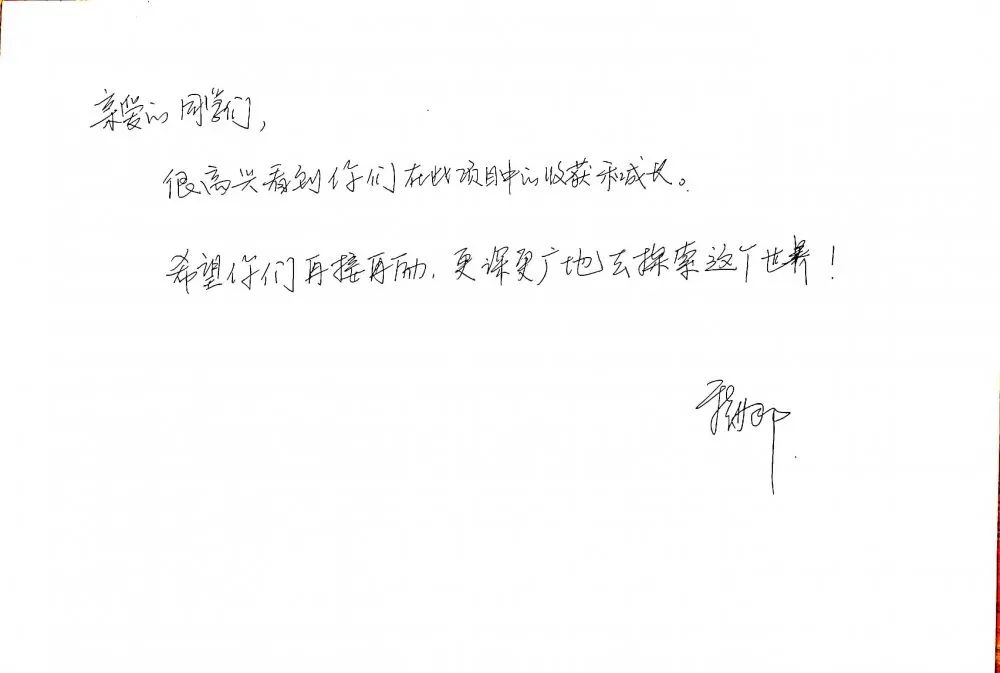 亲爱的同学们,
很高兴看到你们在此项目中的收获和成长。
希望你们再接再励,更深更广地去探索这个世界!